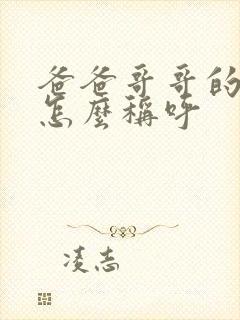 爸爸哥哥的
怎麼稱呼
凌志